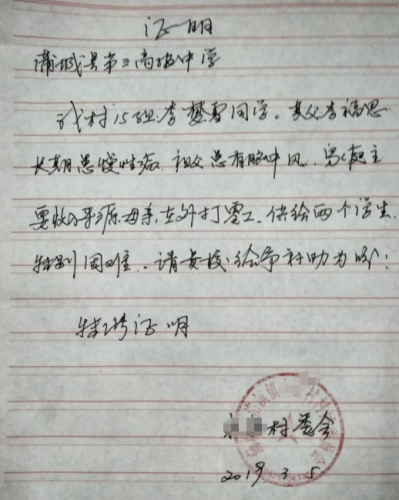 证明
蒲城县第三高级中学
我村15组李梦雪同学。其父李福思
长期患慢性病、祖父患有脑中风、家庭主
要收入来源母亲在外打零工、供给两个学生、
特别困难、请贵校给争补助为盼!
特此证明
村委会
2019 3.5